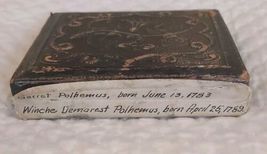 Garret Polhemus, born June 13, 1783
Winche Demarest Polhemus, born April 25, 1789